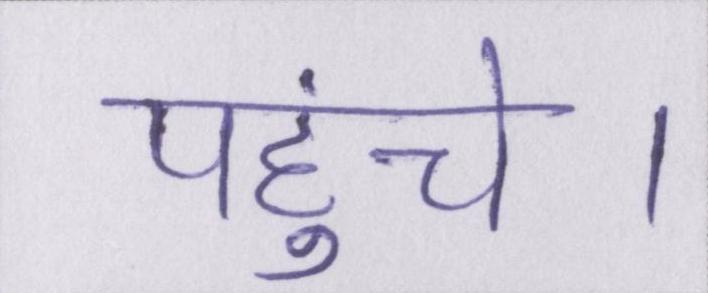 पहुंचे।